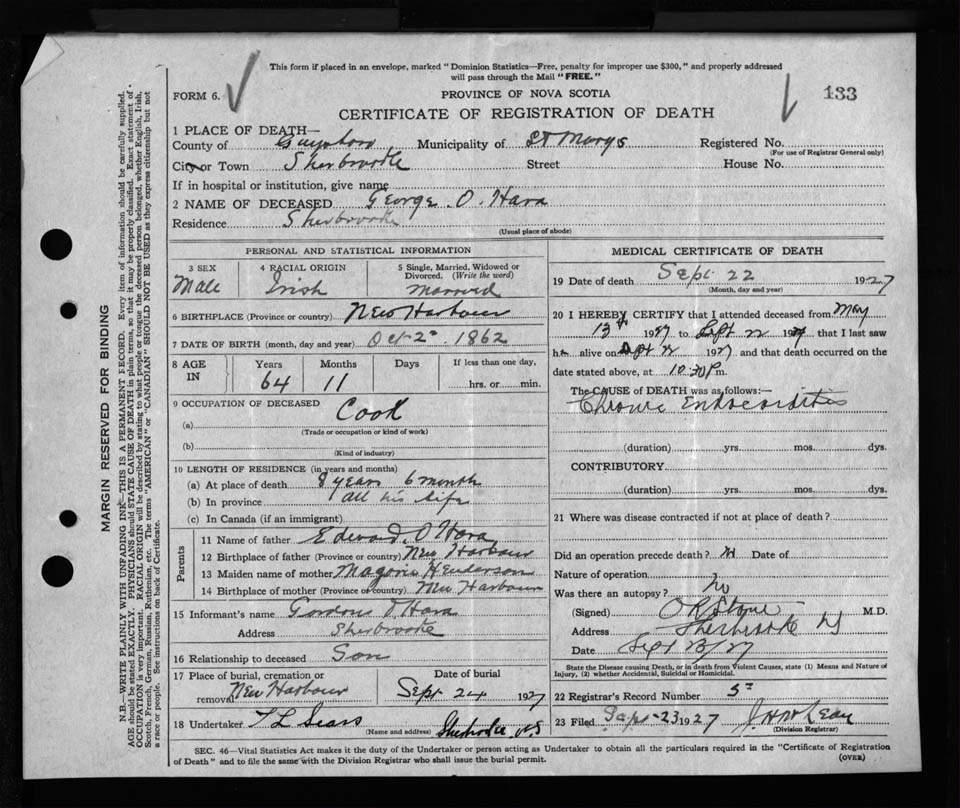 This form if placed in an envelope, marked "Dominion Statistics—Free, penalty for improper use $300," and properly addressed
will pass through the Mail "FREE."
FORM 6.
PROVINCE OF NOVA SCOTIA
133
CERTIFICATE OF REGISTRATION OF DEATH
1 PLACE OF DEATH—
County of Guysboro Municipality of St Marys Registered No.
(For use of Registrar General only)
City or Town Sherbrooke Street House No.
If in hospital or institution, give name
2 NAME OF DECEASED George O. Hara
Residence Sherbrooke
(Usual place of abode)
PERSONAL AND STATISTICAL INFORMATION
3 SEX Male
4 RACIAL ORIGIN Irish
5 Single, Married, Widowed or Divorced. (Write the word) Married
6 BIRTHPLACE (Province or country) New Harbour
7 DATE OF BIRTH (month, day and year) Oct 2nd 1862
8 AGE IN Years 64 Months 11 Days If less than one day, hrs. or min.
9 OCCUPATION OF DECEASED
(a) Cook
(Trade or occupation or kind of work)
(b)
(Kind of industry)
10 LENGTH OF RESIDENCE (in years and months)
(a) At place of death 8 years 6 month
(b) In province all his life
(c) In Canada (if an immigrant)
Parents
11 Name of father Edward O Hara
12 Birthplace of father (Province or country) New Harbour
13 Maiden name of mother Magorie Henderson
14 Birthplace of mother (Province or country) New Harbour
15 Informant's name Gordon O Hara
Address Sherbrooke
16 Relationship to deceased Son
17 Place of burial, cremation or removal New Harbour
Date of burial Sept 24 1927
18 Undertaker T L Sears Sherbrooke N.S
(Name and address)
MEDICAL CERTIFICATE OF DEATH
19 Date of death Sept 22 1927
(Month, day and year)
20 I HEREBY CERTIFY that I attended deceased from May
13th 1927 to Sept 22 1927 that I last saw
h alive on Sept 22 1927 and that death occurred on the
date stated above, at 10.30 P.m.
The CAUSE of DEATH was as follows:—
Chronic Endocarditis
(duration) yrs. mos. dys.
CONTRIBUTORY
(duration) yrs. mos. dys.
21 Where was disease contracted if not at place of death?
Did an operation precede death? Date of
Nature of operation
Was there an autopsy? No
(Signed) M.D.
Address Sherbrooke NS
Date Sept 23/27
State the Disease causing Death, or in death from Violent Causes, state (1) Means and Nature of
Injury, (2) whether Accidental, Suicidal or Homicidal.
22 Registrar's Record Number
23 Filed Sept-23 1927
(Division Registrar)
SEC. 46—Vital Statistics Act makes it the duty of the Undertaker or person acting as Undertaker to obtain all the particulars required in the "Certificate of Registration
of Death" and to file the same with the Division Registrar who shall issue the burial permit.
(OVER)
MARGIN RESERVED FOR BINDING
N.B.—WRITE PLAINLY WITH UNFADING INK—THIS IS A PERMANENT RECORD. Every item of information should be carefully supplied.
AGE should be stated EXACTLY. PHYSICIANS should STATE CAUSE OF DEATH in plain terms, so that it may be properly classified. Exact statement of
OCCUPATION is very important. RACIAL ORIGIN will be described by stating to what people or tongue the deceased person belonged, whether English, Irish,
Scotch, French, German, Russian, Ruthenian, etc. The terms "AMERICAN" or "CANADIAN" SHOULD NOT BE USED as they express citizenship but not
a race or people. See instructions on back of Certificate.